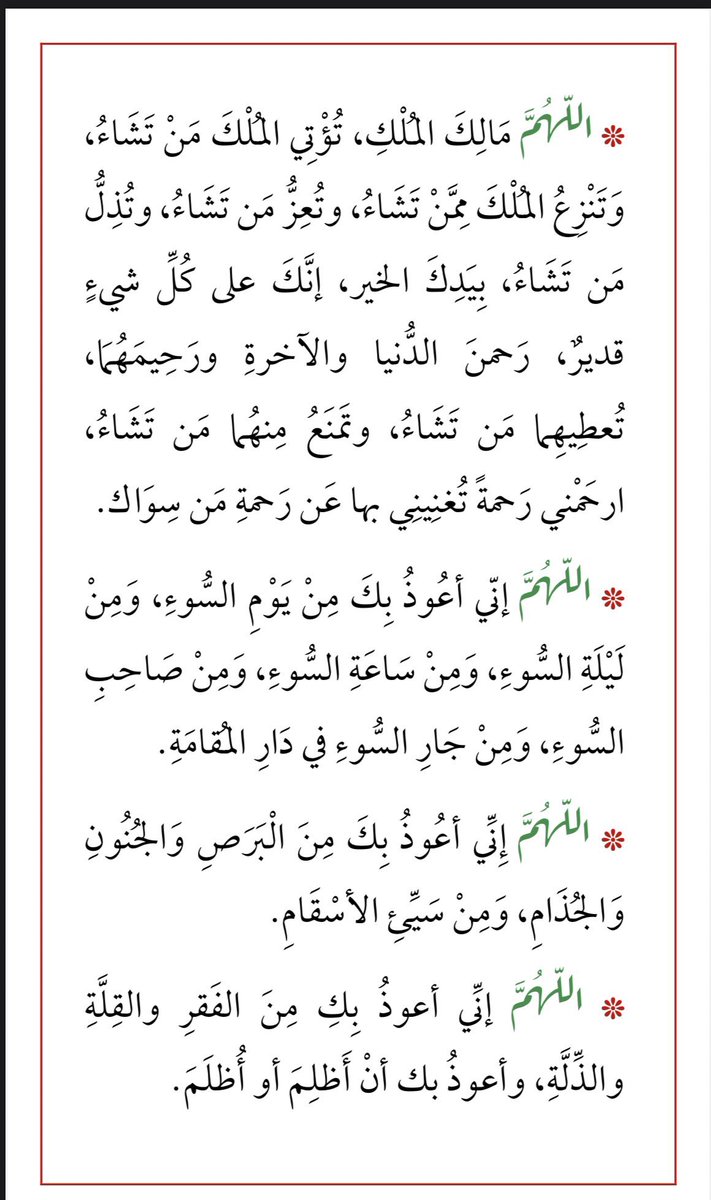 * اللَّهُمَّ مَالِكَ المُلْكِ، تُؤْتِي المُلْكَ مَنْ تَشَاءُ،
وَتَنْزِعُ المُلْكَ مِمَّنْ تَشَاءُ، وتُعِزُّ مَن تَشَاءُ، وتُذِلُّ
مَن تَشَاءُ، بِيَدِكَ الخير، إنَّكَ على كُلِّ شيءٍ
قديرٌ، رَحمنَ الدُّنيا والآخرةِ ورَحِيمَهُمَا،
تُعطِيهِما مَن تَشَاءُ، وتَمنَعُ مِنهُما مَن تَشَاءُ،
ارحَمْني رَحمةً تُغنِينِي بها عَن رَحمةِ مَن سِوَاك.
* اللَّهُمَّ إنّي أعُوذُ بِكَ مِنْ يَوْمِ السُّوءِ، وَمِنْ
لَيْلَةِ السُّوءِ، وَمِنْ سَاعَةِ السُّوءِ، وَمِنْ صَاحِبِ
السُّوءِ، وَمِنْ جَارِ السُّوءِ في دَارِ المُقامَةِ.
* اللَّهُمَّ إِنِّي أعُوذُ بِكَ مِنَ الْبَرَصِ وَالجُنُونِ
وَالجُذَامِ، وَمِنْ سَيِّئِ الأسْقَامِ.
* اللَّهُمَّ إنِّي أعوذُ بِكِ مِنَ الفَقرِ والقِلَّةِ
والذِّلَّةِ، وأعوذُ بك أنْ أَظلِمَ أو أُظلَمَ.